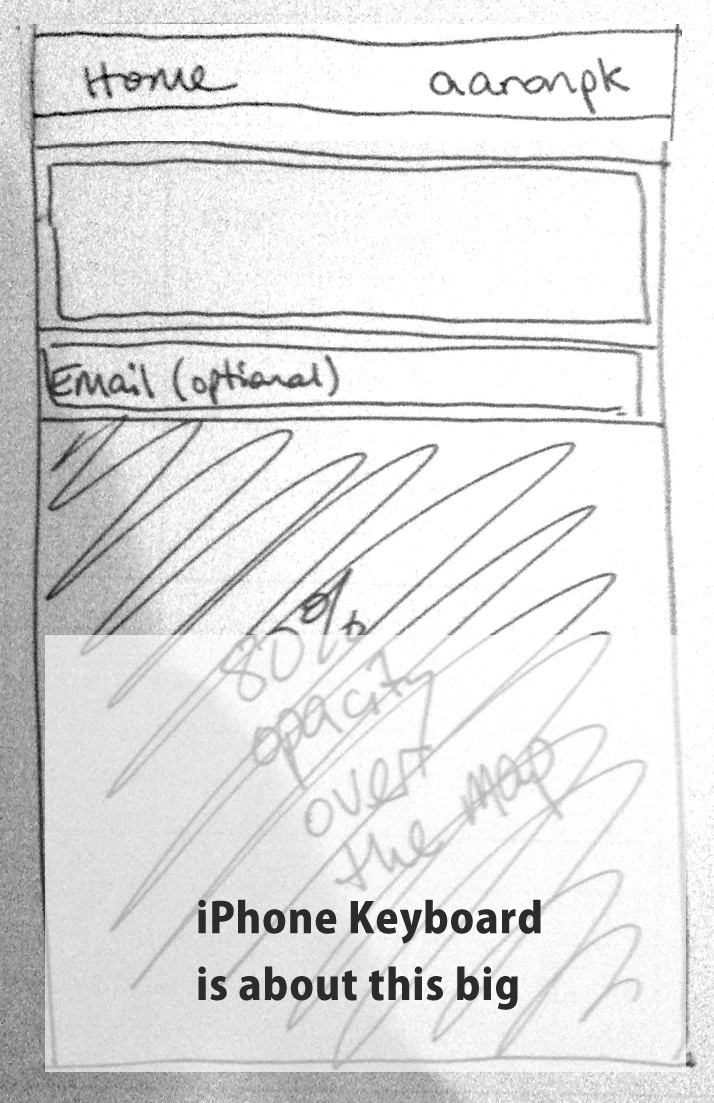 Home aaronpk
Email (optional)
80%
opacity
over
the map
iPhone Keyboard
is about this big